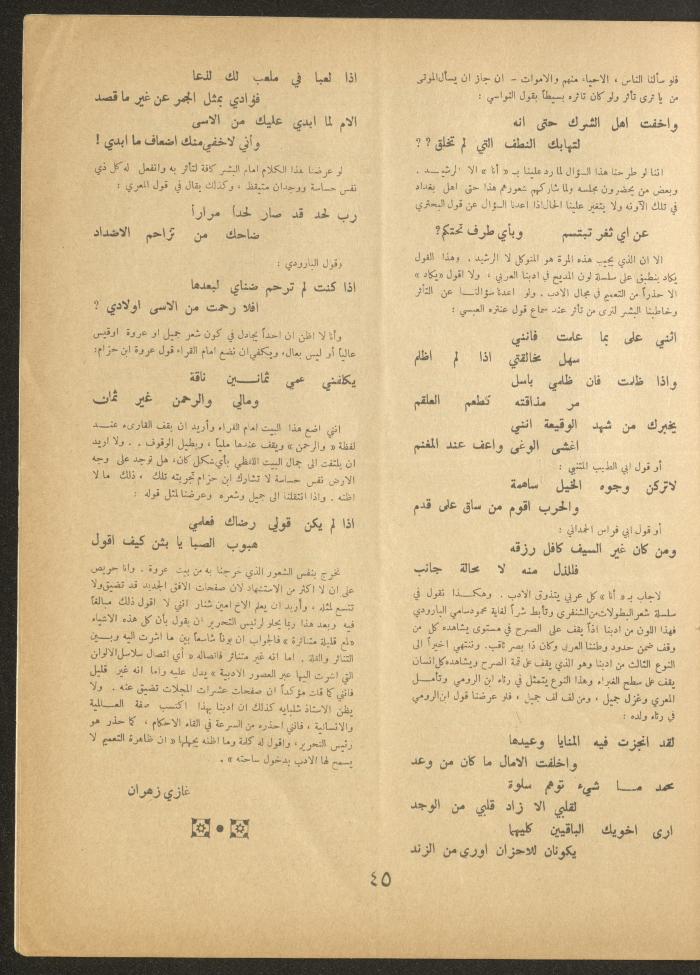 فلو سألنا الناس ، الاحياء منهم والاموات - ان جاز ان يسأل الموتى
من يا ترى تأثر ولو كان تأثره بسيطاً بقول النواسي :
واخفت اهل الشرك حتى انه
لتهابك النطف التي لم تخلق ؟ ؟
اننا لو طرحنا هذا السؤال لما رد علينا بـ « أنا » الا الرشيـد .
وبعض من يحضرون مجلسه ولما شاركهم شعورهم هذا حتى اهل بغداد
في تلك الآونه ولا يتغير علينا الحال اذا اعدنا السؤال عن قول البحتري
عن اي ثغر تبتسم وبأي طرف تحتكم؟
الا ان الذي يجيب هذه المرة هو المتوكل لا الرشيد . وهذا القول
يكاد ينطبق على سلسلة لون المديح في ادبنا العربي ، ولا اقول «يكاد »
الا حذراً من التعميم في مجال الادب . ولو اعدنا سؤالنـا عن التأثر
وخاطبنا البشر لنرى من تأثر عند سماع قول عنتره العبسي :
اثني على بما علمت فانني
سهل مخالقتي اذا لم اظلم
واذا ظلمت فان ظلمي باسل
مر مذاقته كطعم العلقم
يخبرك من شهد الوقيعة انني
اغشى الوغى واعف عند المغنم
أو قول ابي الطيب المتنبي :
لاتركن وجوه الخيل ساهمة
والحرب اقوم من ساق على قدم
أو قول ابي فراس الحمداني :
ومن كان غير السيف كافل رزقه
فللذل منه لا محالة جانب
لاجاب بـ « أنا » كل عربي يتذوق الادب . وهكـذا نقول في
سلسلة شعر البطولات من الشنفري وتأبط شراً لغاية محمود سامي البارودي
فهذا اللون من ادبنا اذاً يقف على الصرح في مستوى يشاهده كل من
وقف ضمن حدود وطننا العربى وكان ذا بصر ثاقب. وننتهي اخيراً الى
النوع الثالث من ادبنا وهو الذي يقف على قمة الصرح ويشاهده كل انسان
يقف على سطح الغبراء وهذا النوع يتمثل في رثاء ابن الرومي وتأمـل
المعري وغزل جميل ، ومن لف لف جميل ، فلو عرضنا قول ابن الرومي
في رثاء ولده :
لقد انجزت فيه المنايا وعيدها
واخلفت الامال ما كان من وعد
محمد مـا شيء توهم سلوة
لقلبي الا زاد قلبي من الوجد
ارى اخويك الباقيين كليهما
يكونان للاحزان اورى من الزند
اذا لعبا في ملعب لك لذعا
فؤادي بمثل الجمر عن غير ما قصد
الام لما ابدي عليك من الاسى
وأني لاخفي منك اضعاف ما ابدي !
لو عرضنا هذا الكلام امام البشر كافة لتأثر به وانفعل له كل ذي
نفس حساسة ووجدان متيقظ ، وكذلك يقال في قول المعري :
رب لحد قد صار لحداً مراراً
ضاحك من تزاحم الاضداد
وقول البارودي :
اذا كنت لم ترحم ضناي لبعدها
افلا رحمت من الاسى اولادي ؟
وأنا لا اظن ان احداً يجادل في كون شعر جميل او عروة اوقيس
عالياً أو ليس بعال، ويكفي ان نضع امام القراء قول عروة ابن حزام:
يكلفني عمي ثمانـين ناقة
ومالي والرحمن غير ثمان
انني اضع هذا البيت امام القراء وأريد ان يقف القارىء عنـد
لفظة « والرحمن » ويقف عندها ملياً ، ويطيل الوقوف . . ولا اريد
ان يلتفت الى جمال البيت اللفظي بأي شكل كان، هل توجد على وجه
الارض نفس حساسة لا تشارك ابن حزام تجربته تلك ، ذلك ما لا
اظنه . واذا انتقلنا الى جميل وشعره وعرضنا لمثل قوله :
اذا لم يكن قولي رضاك فعلمي
هبوب الصبا يا بثن كيف اقول
نخرج بنفس الشعور الذي خرجنا به من بيت عروة . وانا حريص
على ان لا اكثر من الاستشهاد لان صفحات الافق الجديد قد تضيق ولا
تتسع لمثله ، وأريد ان يعلم الاخ امين شنار انني لا اقول ذلك مبالغاً
فيه وبعد هذا ربما يحلو لرئيس التحرير ان يقول بأن كل هذه الاشياء
«لمع قليلة متناثرة » فالجواب ان بوناً شاسعاً بين ما اشرت اليه وبـين
التناثر والقلة . اما انه غير متناثر فاتصاله « أي اتصال سلاسل الالوان
التي اشرت اليها عبر العصور الادبية » يدل عليه واما انه غير قليل
فانني كما قلت مؤكداً ان صفحات عشرات المجلات تضيق عنه . ولا
يظن الاستاذ شلبايه كذلك ان ادبنا بهذا اكتسب صفة العـالمية
والانسانية ، فانني احذره من السرعة في القاء الاحكام ، كما حذر هو
رئيس التحرير، واقول له كلمة وما اظنه يجهلها « ان ظاهرة التعميم لا
يسمح لها الادب بدخول ساحته » .
غازي زهران
٤٥